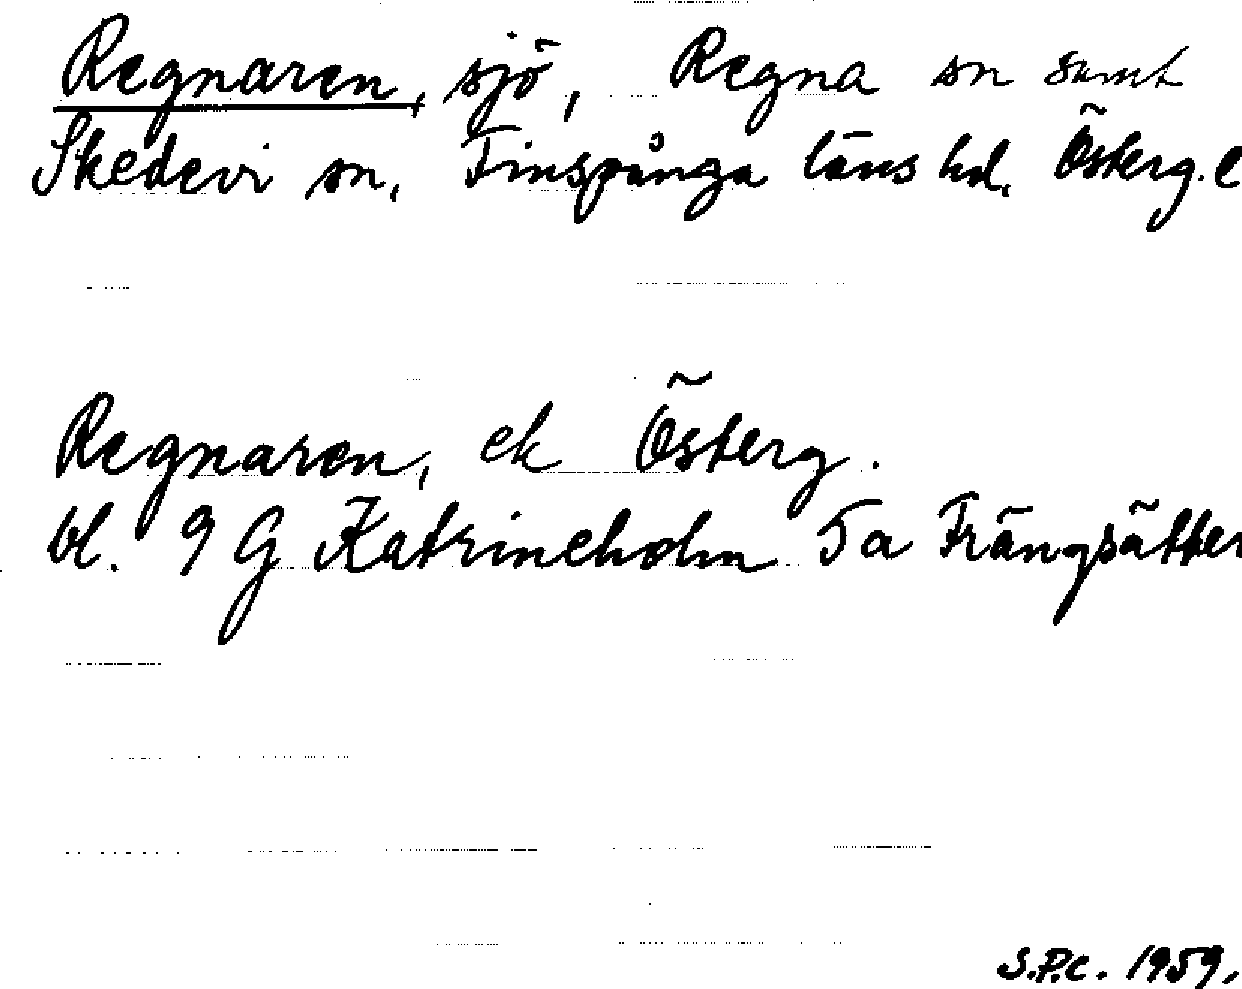 Regnaren, sjö, Regna sn samt
Skedevi sn, Finspånga läns hd. Österg. l
Regnaren, ek Österg.
bl. 9 G Katrineholm 5a Frängsätter
S.P.C. 1959.